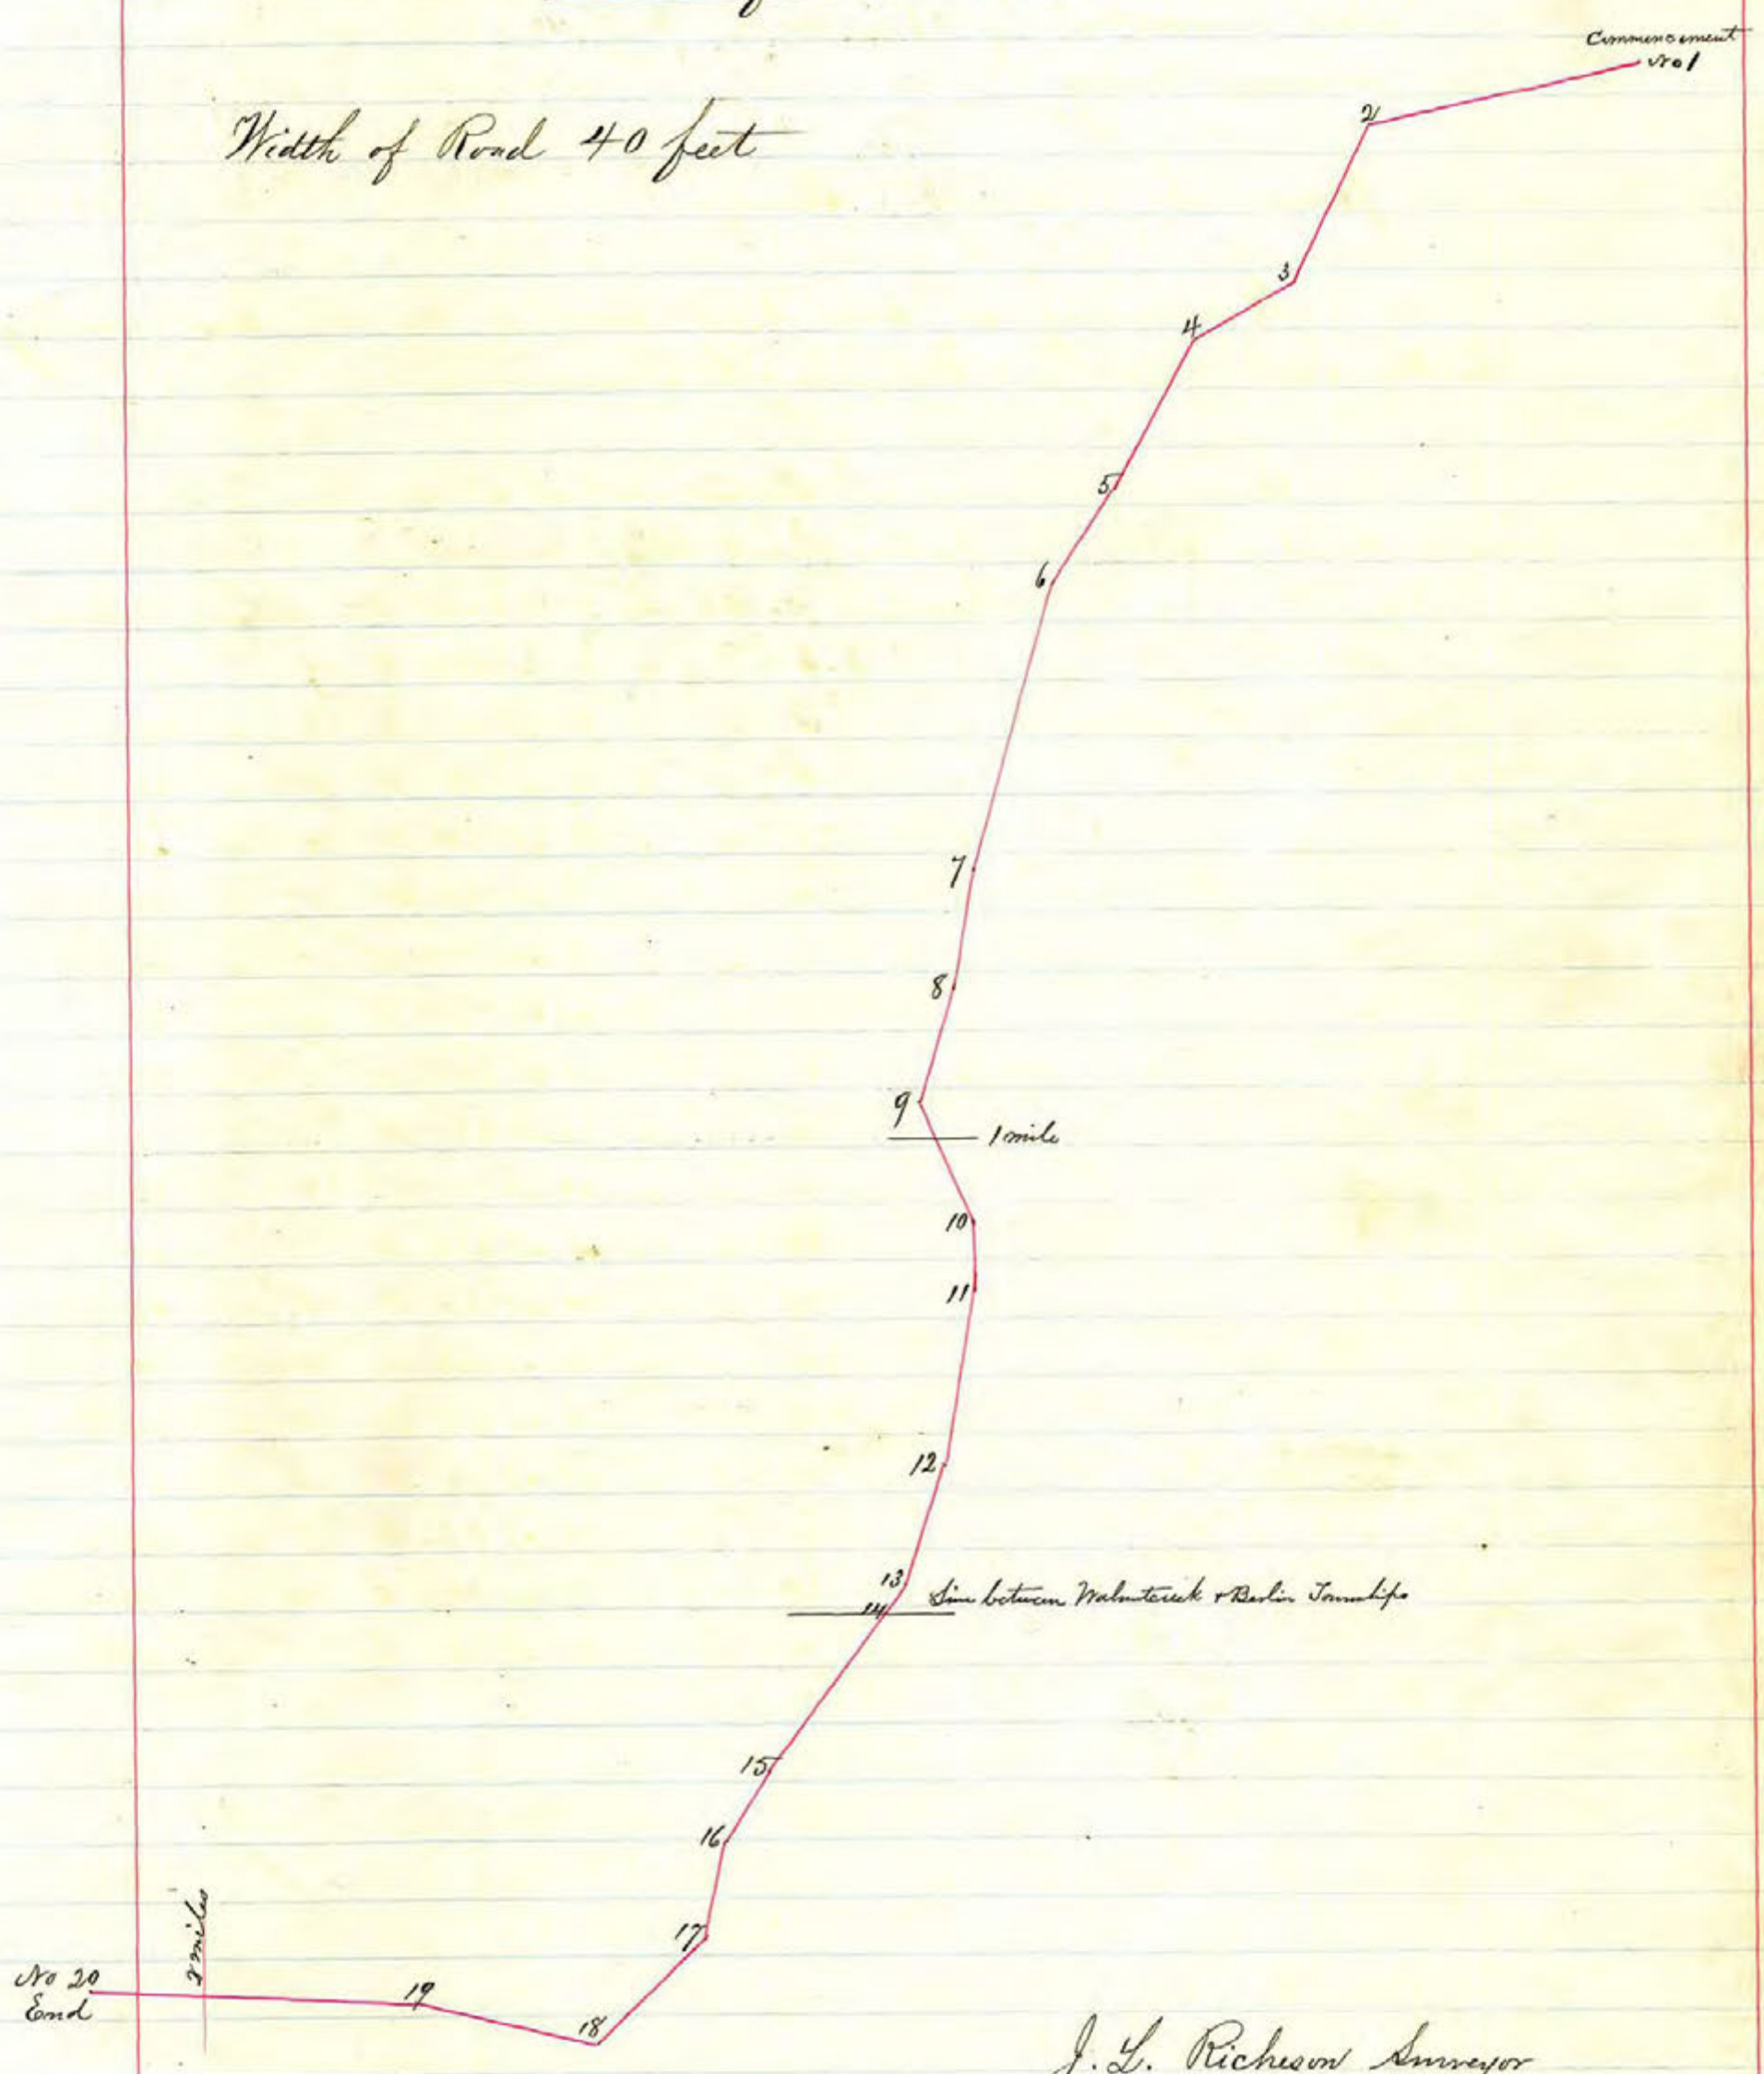 Commencement
No 1
Width of Road 40 feet
2
3
4
5
6
7
8
9
1 mile
10
11
12
13
Line between Walnutcreek & Berlin Townships
14
15
16
17
2 miles
No 20
End
19
18
J. L. Richeson Surveyor